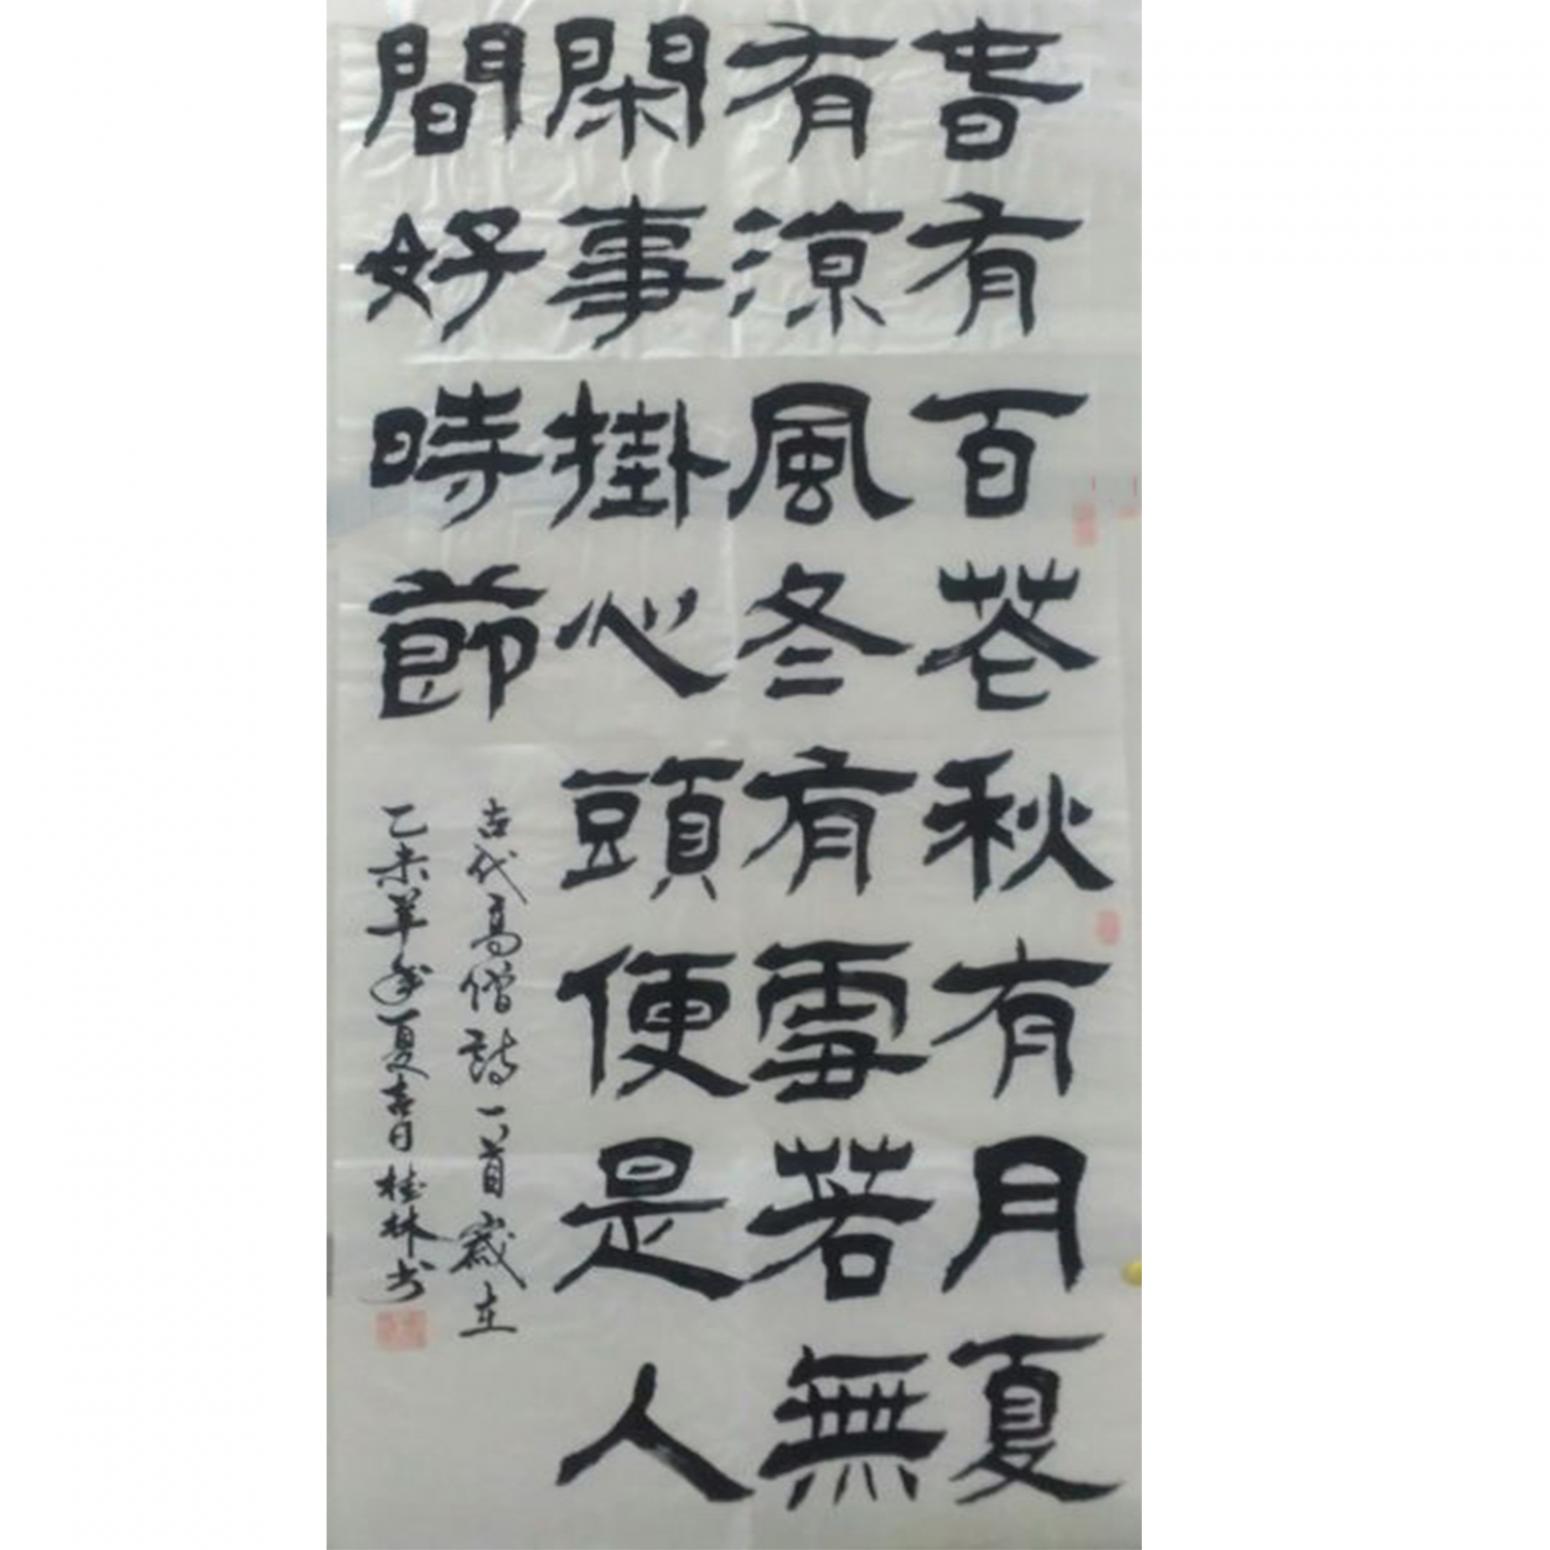 春有百花秋有月夏
有涼風冬有雪若無
閑事掛心頭便是人
間好時節
古代高僧詩一首歲在
乙未羊年夏吉日桂林书